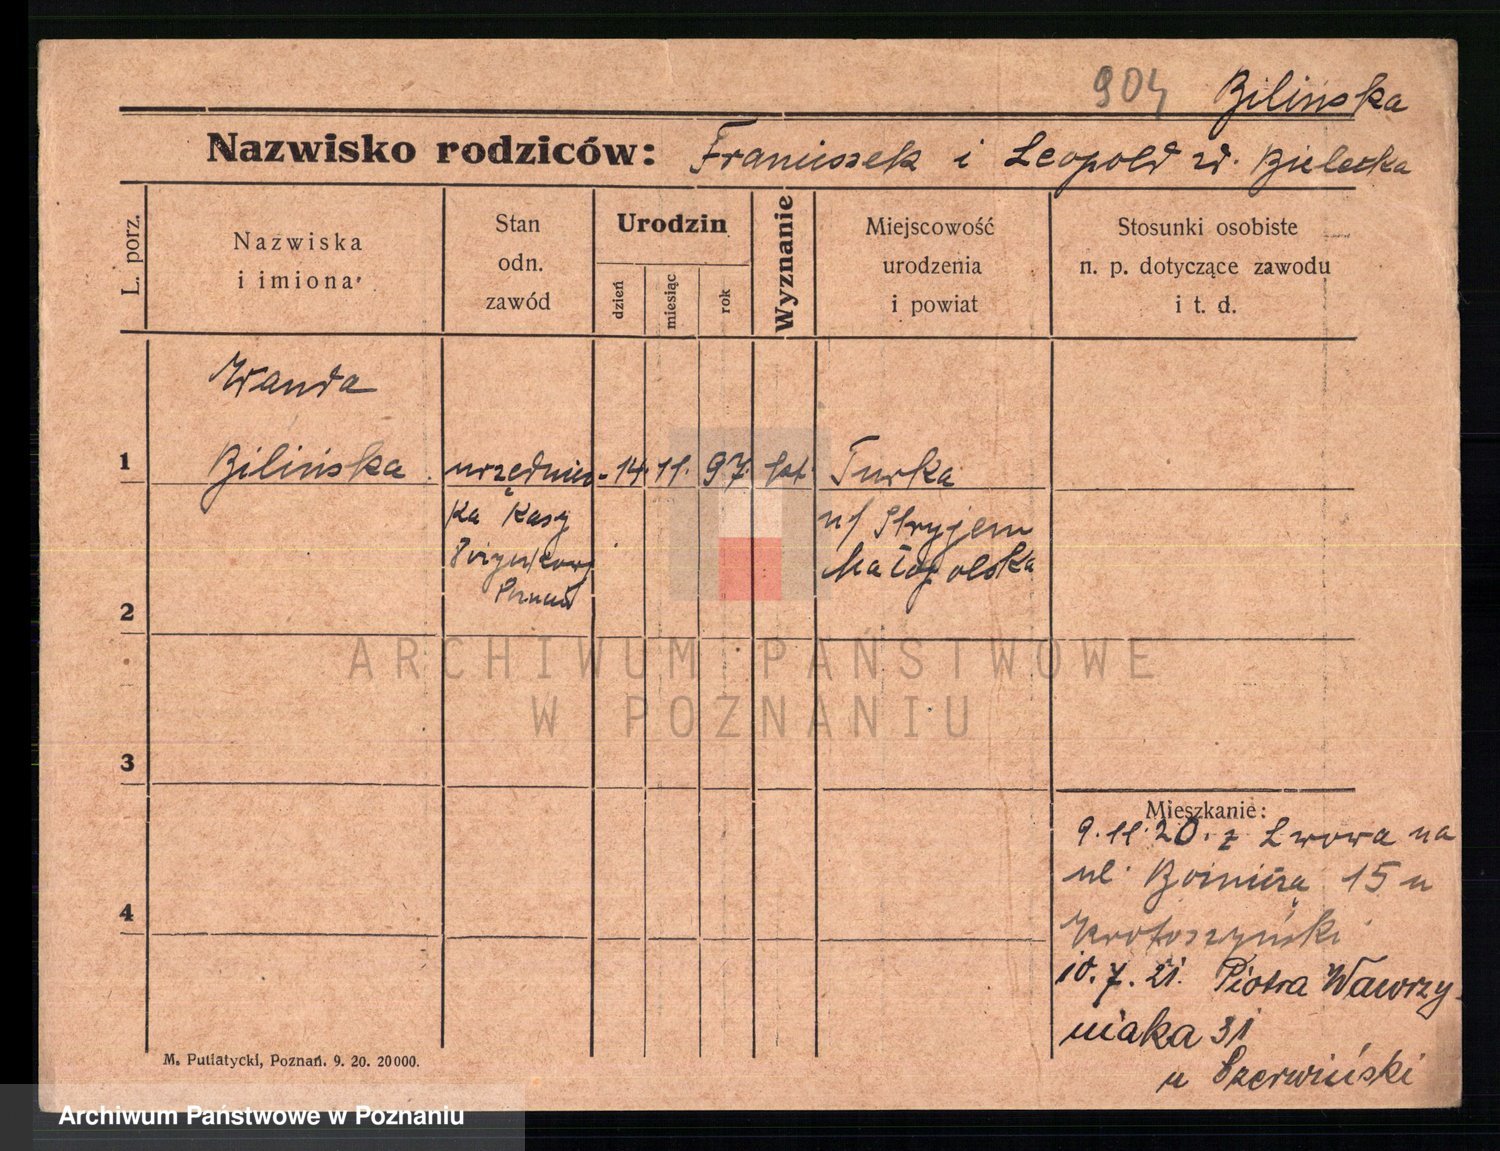 904 Bilińska
Nazwisko rodziców: Franciszek i Leopold zd. Bielecka
L. porz.
Nazwiska
i imiona
Stan
odn.
zawód
Urodzin
dzień
miesiąc
rok
Wyznanie
Miejscowość
urodzenia
i powiat
Stosunki osobiste
n. p. dotyczące zawodu
i t. d.
Wanda
1 Bilińska urzędnicz- 14. 11. 97. kat. Turka
ka Kasy n/ Stryjem
Małopolska
2
ARCHIWUM PAŃSTWOWE
W POZNANIU
3
Mieszkanie:
9.11.20. z Lwowa na
ul. 15 u
4 Krotoszyński
10.7.21. Piotra Wawrzy-
niaka 31
u Szerwiński
M. Putiatycki, Poznań. 9. 20. 20000.
Archiwum Państwowe w Poznaniu